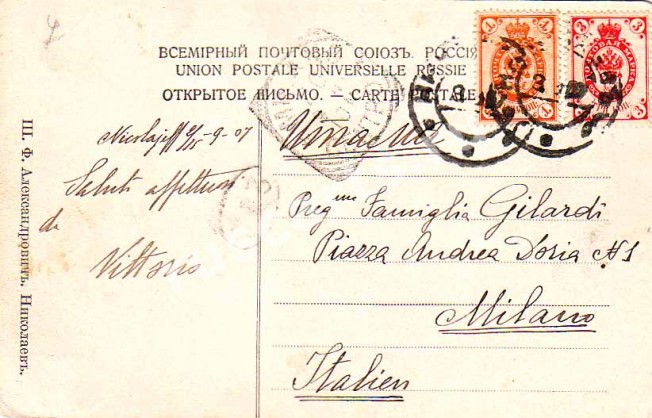 ВСЕМІРНЫЙ ПОЧТОВЫЙ СОЮЗЪ. РОССІЯ
UNION POSTALE UNIVERSELLE RUSSIE
ОТКРЫТОЕ ПИСЬМО. — CARTE POSTALE
Nicolajeff 9-07
Saluti affettuosi
di
Vittorio
Италія
Preg.me Famiglia Gilardi
Piazza Andrea Doria N 1
Milano
Italien
Ш. Ф. Александровичъ. Николаевъ.
1
1
3
3
3